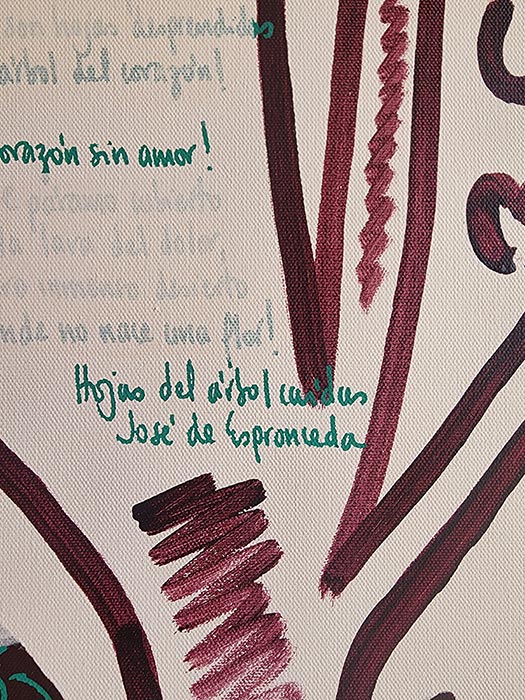 son hojas desprendidas
árbol del corazón!
orazón sin amor!
páramo cubierto
la lava del dolor,
inmenso desierto
nde no nace una flor!
Hojas del árbol caídas
José de Espronceda